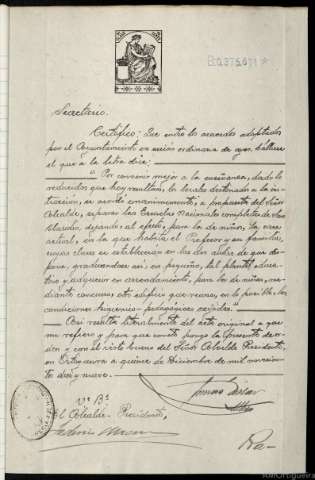 B.0.375.071 *
Secretario.
Certifico: Que entre los acuerdos adoptados
por el Ayuntamiento en sesión ordinaria de ayer, hállase
el que á la letra dice:
"Por convenir mejor a la enseñanza, dado lo
reducidos que hoy resultan los locales destinados a la ins-
trucción, se acordó unanimamente, a propuesta del Señor
Alcalde, separar las Escuelas Nacionales completas de San
Claudio, dejando, al efecto, para la de niños, la casa
actual, en la que habita el Profesor y su familia,
cuyas clases se establecerán en las dos aulas de que dis-
pone, graduándose así en pequeño, tal plantel educa-
tivo y adquirir en arrendamiento, para la de niñas, me-
diante concurso otro edificio que reuna, en lo posible, las
condiciones higienico-pedagógicas exijidas."
Así resulta literalmente del acta original a que
me refiero y para que conste pongo la presente de or-
den y con el visto bueno del Señor Alcalde Presidente,
en Ortigueira a quince de Diciembre de mil novecien-
tos diez y nueve.
Vº Bº
El Alcalde-Presidente,
Ra-